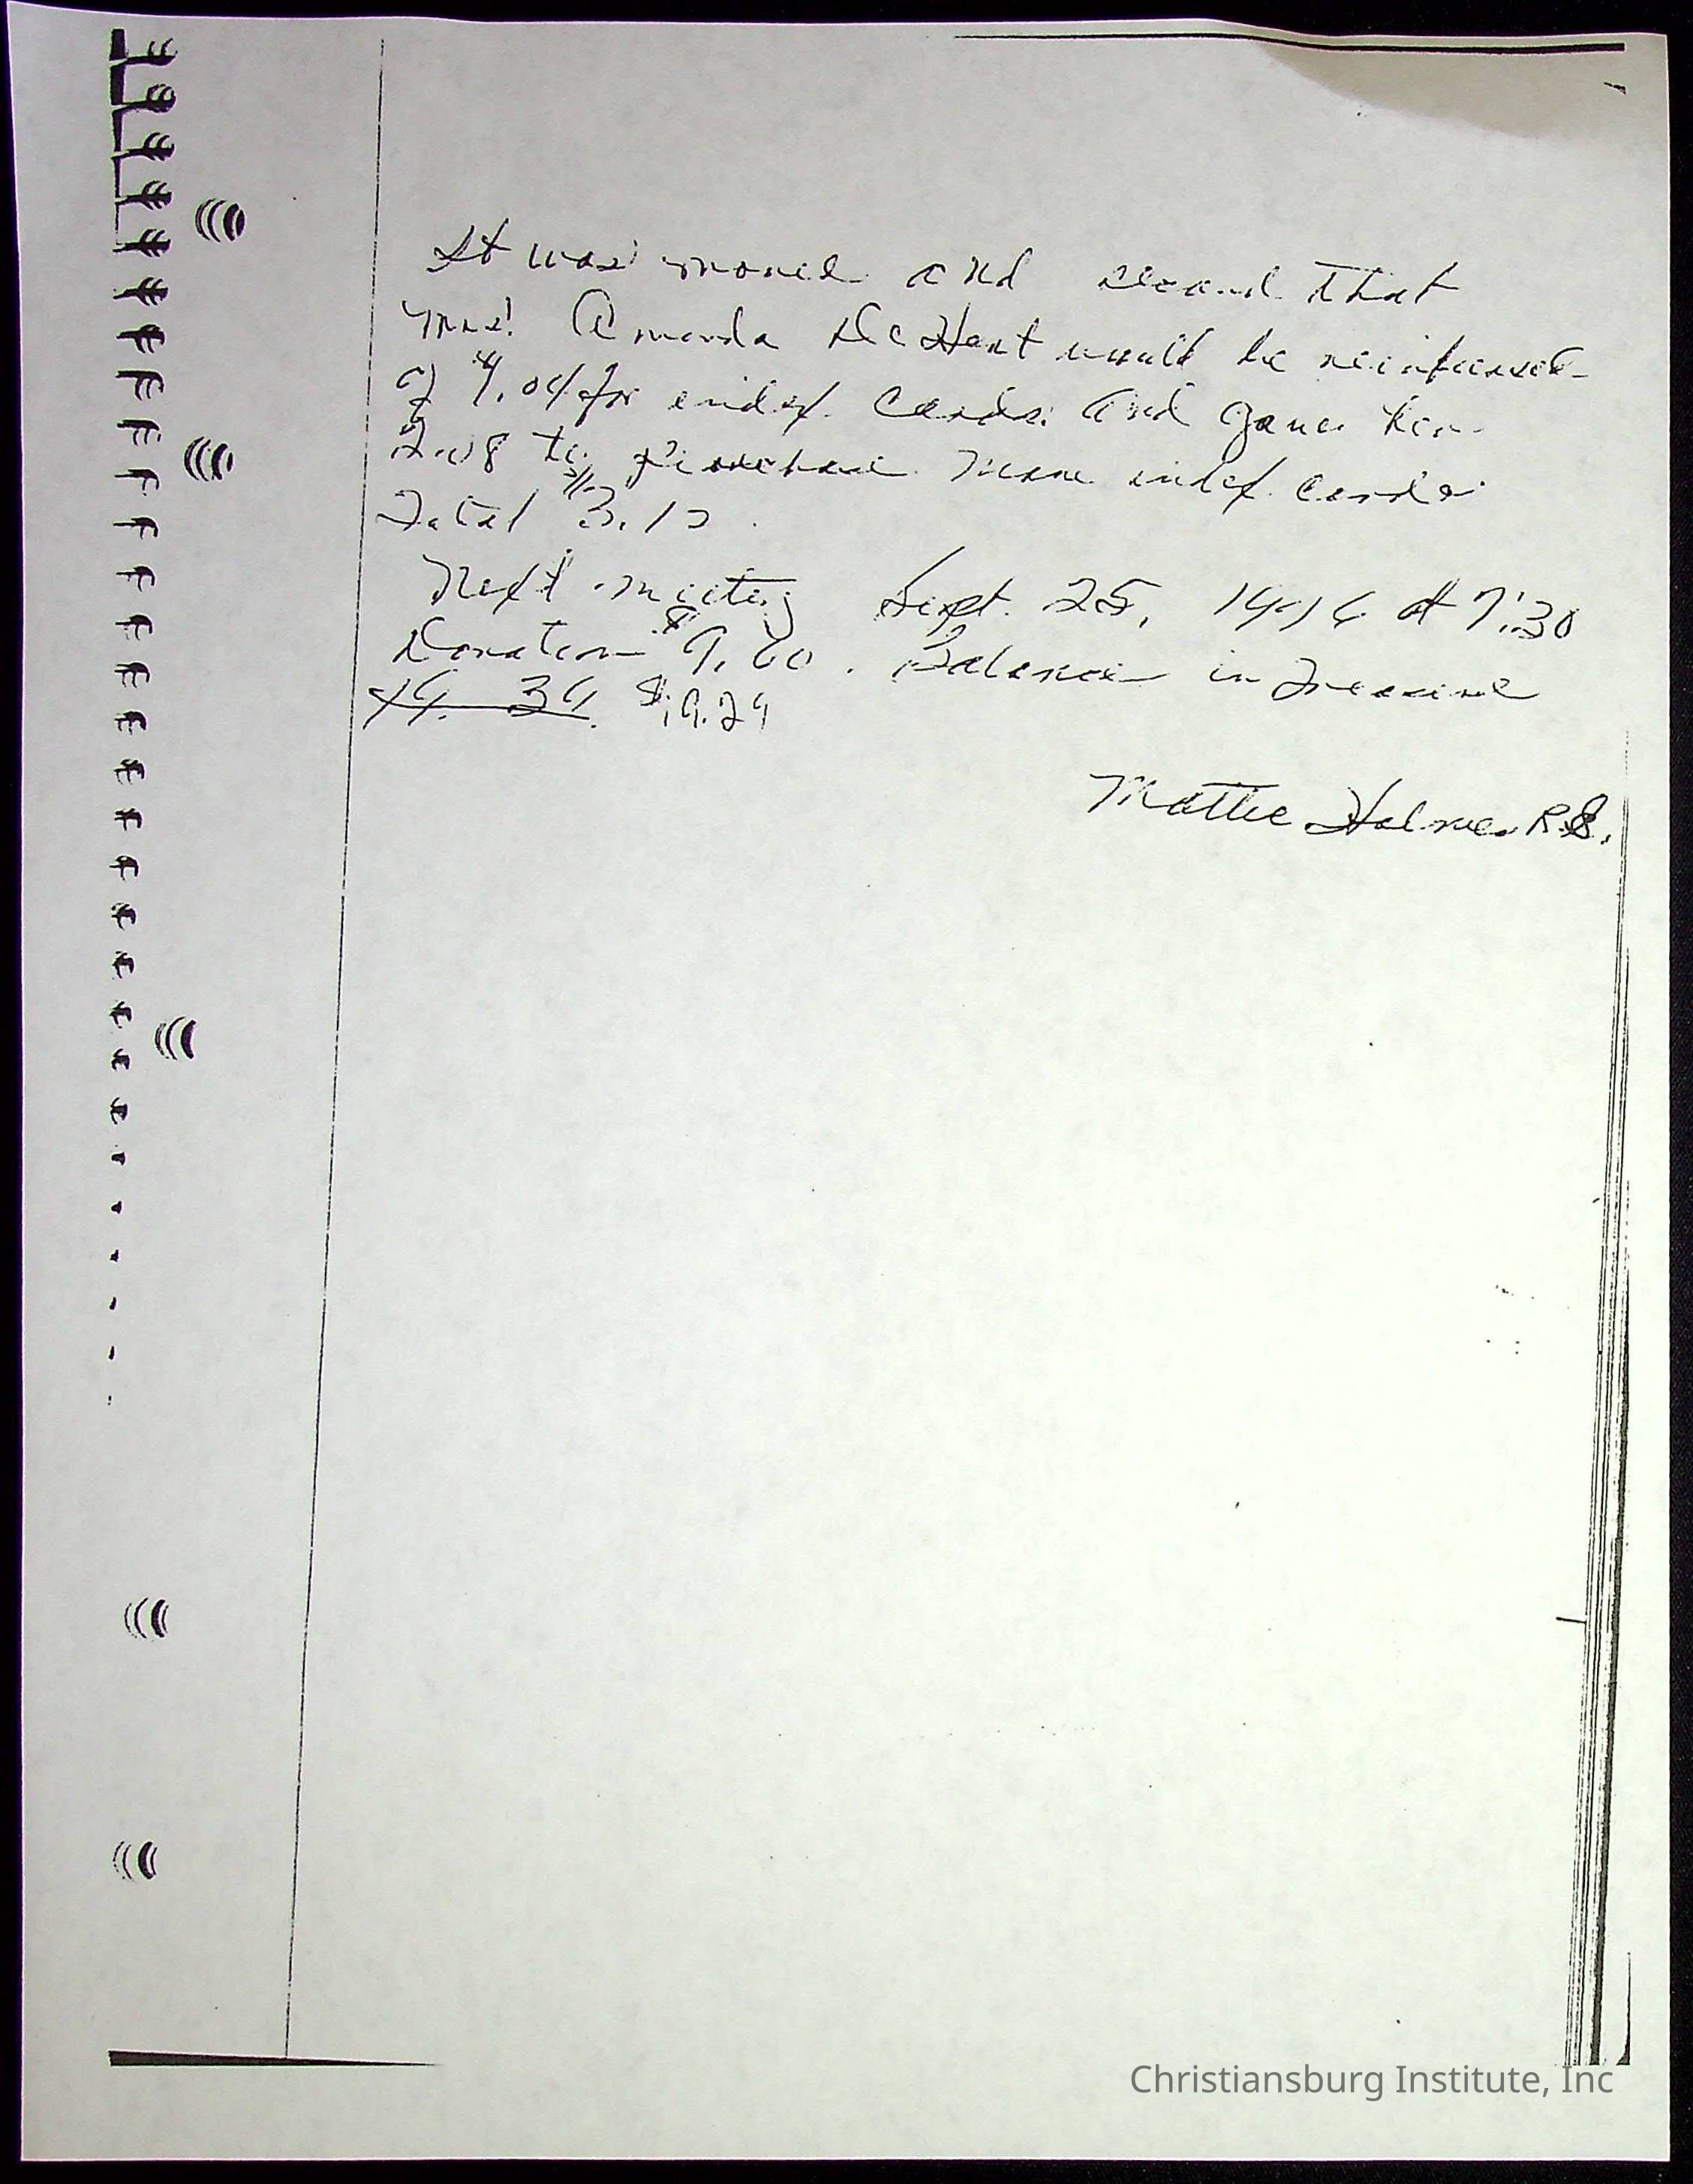 It was move and second that
Mrs. Amanda DeHart would be reimbursed
of 1.04 for index Cards. And gave her
2.08 to purchase more index cards
Total $3.12.
Next meeting Sept. 25, 1976 at 7:30
Donation $9.60. Balance in Treasure
19.29
Mattie Holmes R.S.
Christiansburg Institute, Inc